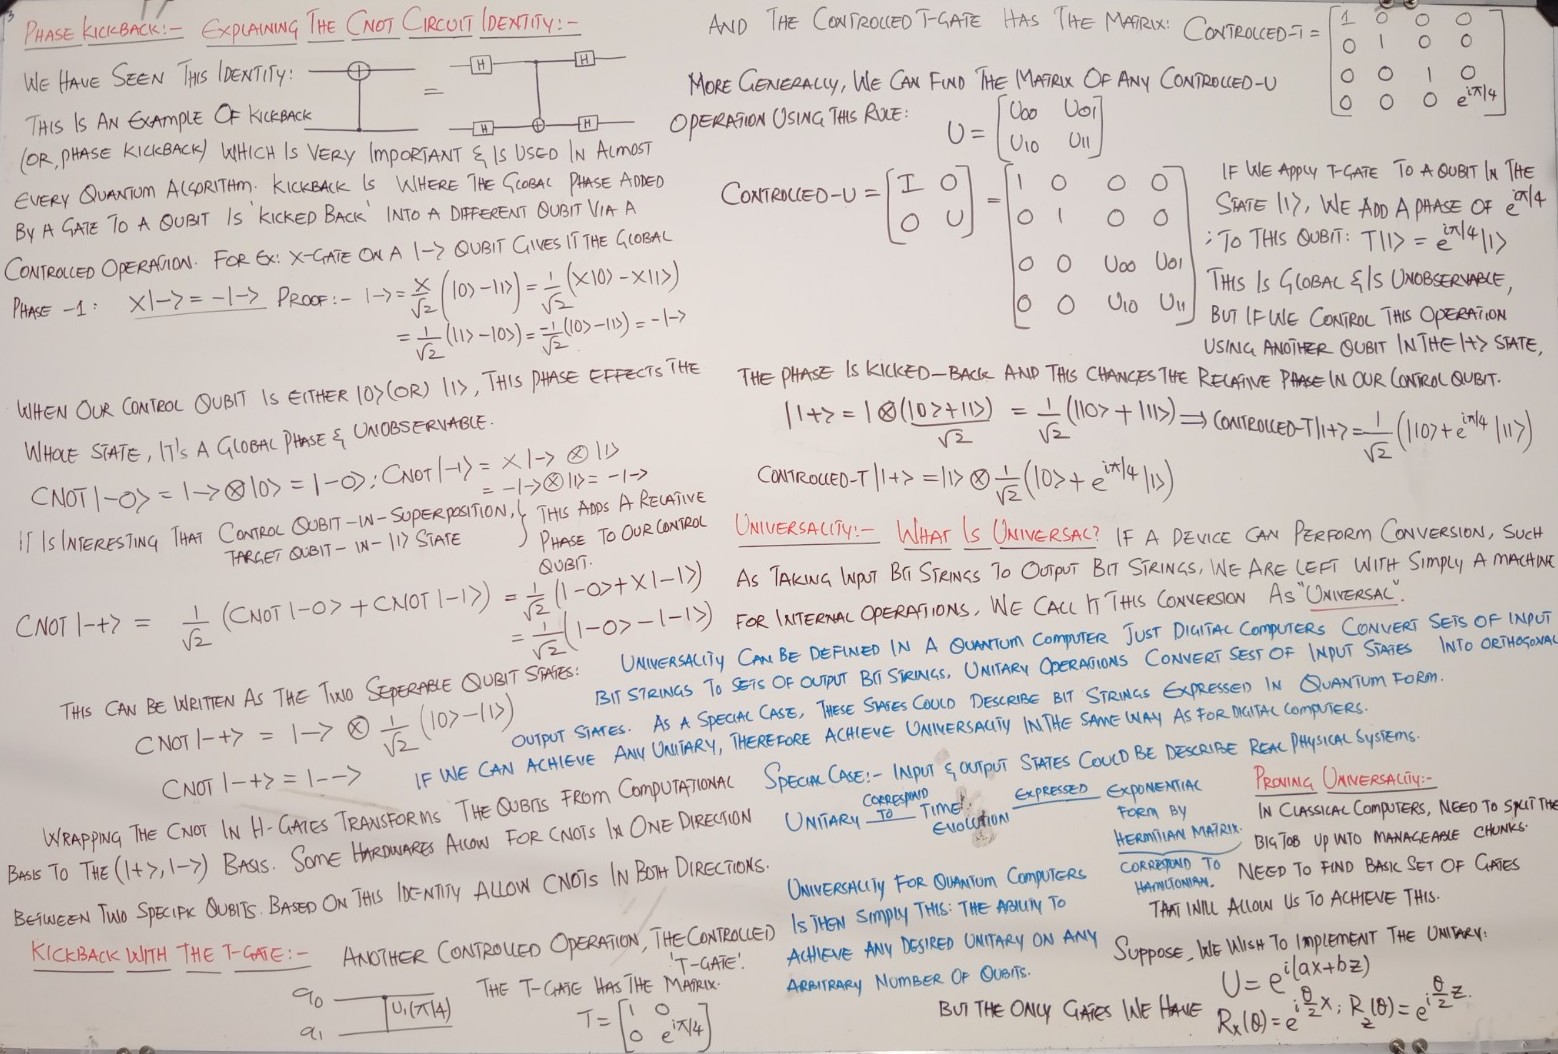 PHASE KICKBACK:- EXPLAINING THE CNOT CIRCUIT IDENTITY:-
WE HAVE SEEN THIS IDENTITY:
H H
=
H H
THIS IS AN EXAMPLE OF KICKBACK
(OR, PHASE KICKBACK) WHICH IS VERY IMPORTANT & IS USED IN ALMOST
EVERY QUANTUM ALGORITHM. KICKBACK IS WHERE THE GLOBAL PHASE ADDED
BY A GATE TO A QUBIT IS 'KICKED BACK' INTO A DIFFERENT QUBIT VIA A
CONTROLLED OPERATION. FOR EX: X-GATE ON A |-> QUBIT GIVES IT THE GLOBAL
PHASE -1: X|-> = -|-> PROOF:- |-> = X/√2 (|0> - |1>) = 1/√2 (X|0> - X|1>)
= 1/√2 (|1> - |0>) = -1/√2 (|0> - |1>) = -|->
WHEN OUR CONTROL QUBIT IS EITHER |0> (OR) |1>, THIS PHASE EFFECTS THE
WHOLE STATE, IT'S A GLOBAL PHASE & UNOBSERVABLE.
CNOT |-0> = |-> ⊗ |0> = |-0> ; CNOT |-1> = X|-> ⊗ |1>
= -|-> ⊗ |1> = -|->
IT IS INTERESTING THAT CONTROL QUBIT-IN-SUPERPOSITION,
TARGET QUBIT-IN-|1> STATE
} THIS ADDS A RELATIVE
PHASE TO OUR CONTROL
QUBIT.
CNOT |-+> = 1/√2 (CNOT |-0> + CNOT |-1>) = 1/√2 (|-0> + X|-1>)
= 1/√2 (|-0> - |-1>)
THIS CAN BE WRITTEN AS THE TWO SEPERABLE QUBIT STATES:
CNOT |-+> = |-> ⊗ 1/√2 (|0> - |1>)
CNOT |-+> = |-->
WRAPPING THE CNOT IN H-GATES TRANSFORMS THE QUBITS FROM COMPUTATIONAL
BASIS TO THE (|+>, |->) BASIS. SOME HARDWARES ALLOW FOR CNOTS IN ONE DIRECTION
BETWEEN TWO SPECIFIC QUBITS. BASED ON THIS IDENTITY ALLOW CNOTS IN BOTH DIRECTIONS.
KICKBACK WITH THE T-GATE:- ANOTHER CONTROLLED OPERATION, THE CONTROLLED
'T-GATE'.
q0
q1
U1(π/4)
THE T-GATE HAS THE MATRIX.
T = [1 0
0 e^iπ/4]
AND THE CONTROLLED T-GATE HAS THE MATRIX: CONTROLLED-T =
[1 0 0 0
0 1 0 0
0 0 1 0
0 0 0 e^iπ/4]
MORE GENERALLY, WE CAN FIND THE MATRIX OF ANY CONTROLLED-U
OPERATION USING THIS RULE:
U = [U00 U01
U10 U11]
CONTROLLED-U = [I 0
0 U] =
[1 0 0 0
0 1 0 0
0 0 U00 U01
0 0 U10 U11]
IF WE APPLY T-GATE TO A QUBIT IN THE
STATE |1>, WE ADD A PHASE OF e^iπ/4
; TO THIS QUBIT: T|1> = e^iπ/4 |1>
THIS IS GLOBAL & IS UNOBSERVABLE,
BUT IF WE CONTROL THIS OPERATION
USING ANOTHER QUBIT IN THE |+> STATE,
THE PHASE IS KICKED-BACK AND THIS CHANGES THE RELATIVE PHASE IN OUR CONTROL QUBIT.
|1+> = 1 ⊗ (|0> + |1>)/√2 = 1/√2 (|10> + |11>) ⇒ CONTROLLED-T|1+> = 1/√2 (|10> + e^iπ/4 |11>)
CONTROLLED-T |1+> = |1> ⊗ 1/√2 (|0> + e^iπ/4 |1>)
UNIVERSALITY:- WHAT IS UNIVERSAL? IF A DEVICE CAN PERFORM CONVERSION, SUCH
AS TAKING INPUT BIT STRINGS TO OUTPUT BIT STRINGS, WE ARE LEFT WITH SIMPLY A MACHINE
FOR INTERNAL OPERATIONS, WE CALL IT THIS CONVERSION AS "UNIVERSAL".
UNIVERSALITY CAN BE DEFINED IN A QUANTUM COMPUTER JUST DIGITAL COMPUTERS CONVERT SETS OF INPUT
BIT STRINGS TO SETS OF OUTPUT BIT STRINGS, UNITARY OPERATIONS CONVERT SEST OF INPUT STATES INTO ORTHOGONAL
OUTPUT STATES. AS A SPECIAL CASE, THESE STATES COULD DESCRIBE BIT STRINGS EXPRESSED IN QUANTUM FORM.
IF WE CAN ACHIEVE ANY UNITARY, THEREFORE ACHIEVE UNIVERSALITY IN THE SAME WAY AS FOR DIGITAL COMPUTERS.
SPECIAL CASE:- INPUT & OUTPUT STATES COULD BE DESCRIBE REAL PHYSICAL SYSTEMS.
UNITARY CORRESPOND TO TIME EVOLUTION EXPRESSED EXPONENTIAL
FORM BY
HERMITIAN MATRIX.
CORRESPOND TO
HAMILTONIAN.
UNIVERSALITY FOR QUANTUM COMPUTERS
IS THEN SIMPLY THIS: THE ABILITY TO
ACHIEVE ANY DESIRED UNITARY ON ANY
ARBITRARY NUMBER OF QUBITS.
PROVING UNIVERSALITY:-
IN CLASSICAL COMPUTERS, NEED TO SPLIT THE
BIG JOB UP INTO MANAGEABLE CHUNKS.
NEED TO FIND BASIC SET OF GATES
THAT WILL ALLOW US TO ACHIEVE THIS.
SUPPOSE, WE WISH TO IMPLEMENT THE UNITARY:
U = e^i(ax+bz)
BUT THE ONLY GATES WE HAVE Rx(θ) = e^i θ/2 X ; Rz(θ) = e^i θ/2 Z.